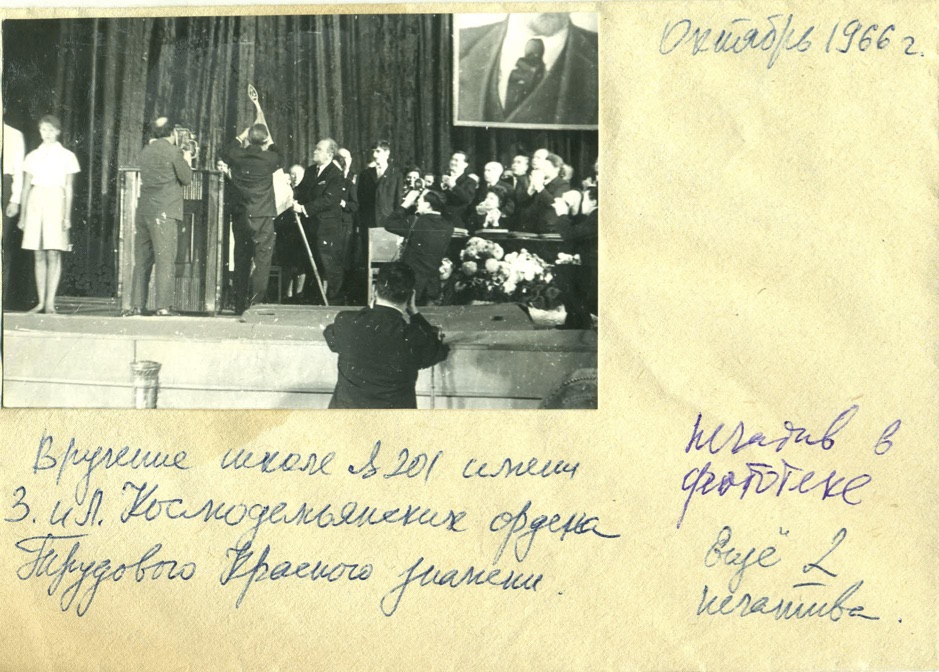 Октябрь 1966 г.
Вручение школе № 201 имени
З. и А. Космодемьянских ордена
Трудового Красного знамени.
Негатив в
фототеке
Ещё 2
негатива.